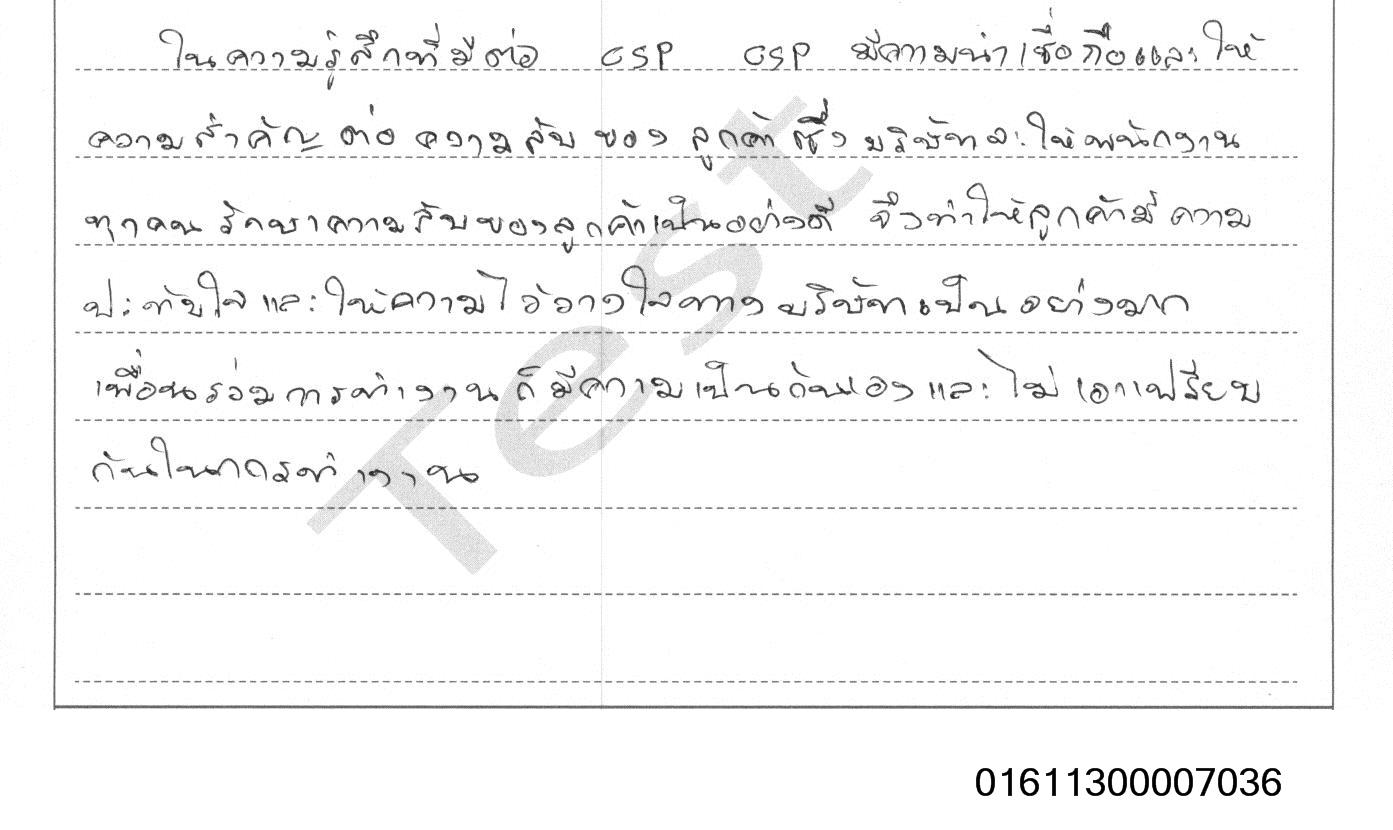 ในความรู้สึกที่มีต่อ CSP CSP มีความน่าเชื่อถือและให้
ความสำคัญ ต่อ ความลับ ของ ลูกค้า ซึ่ง บริษัท จะให้พนักงาน
ทุกคน รักษาความลับของลูกค้าเป็นอย่างดี จึงทำให้ลูกค้ามี ความ
ประทับใจ และ ให้ความไว้วางใจทาง บริษัท เป็น อย่างมาก
เพื่อนร่วมการทำงาน ก็ มีความเป็นกันเอง และ ไม่ เอาเปรียบ
กันในการทำงาน
Test
01611300007036